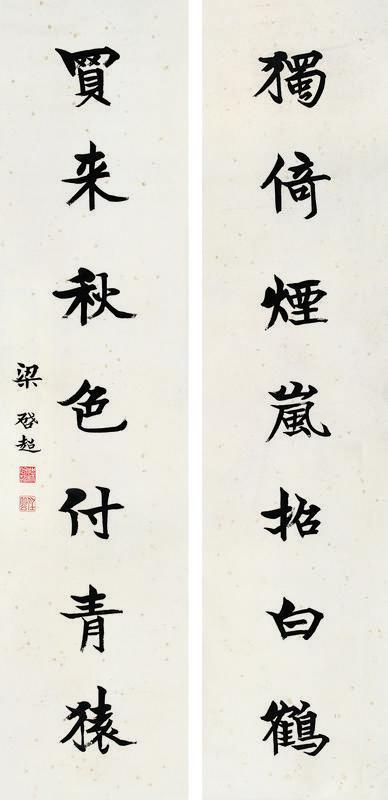 獨倚煙嵐招白鶴
買来秋色付青猿
梁啓超